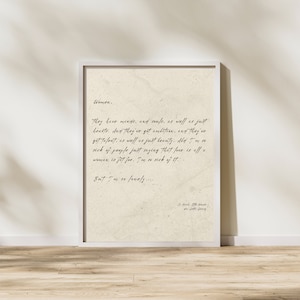 Women.
They have minds, and souls, as well as just
hearts. And they've got ambition, and they've
got talent, as well as just beauty. And I'm so
sick of people just saying that love is all a
woman is fit for. I'm so sick of it.
But I'm so lonely...